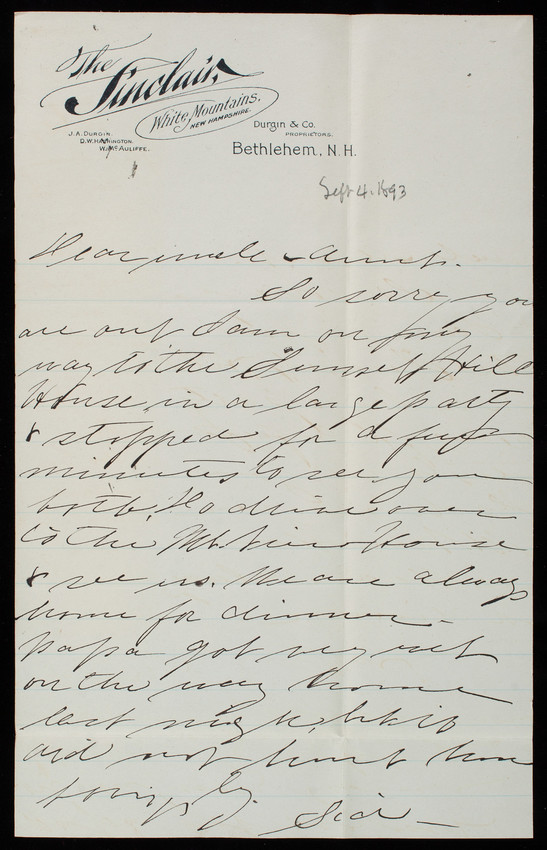 The
Sinclair,
White Mountains.
NEW HAMPSHIRE.
J. A. DURGIN.
D. W. HARRINGTON.
W. McAULIFFE.
Durgin & Co.
PROPRIETORS.
Bethlehem, N. H.
Sept 4. 1893
Dear uncle & Aunt.
So sorry you
are out I am on my
way to the Sunset Hill
House in a large party
& stopped for a few
minutes to see you
both. Do drive over
to the Mt. View House
& see us. We are always
home for dinner.
Papa got very wet
on the way home
last night, but it
did not hurt him
Lovingly.
Sid